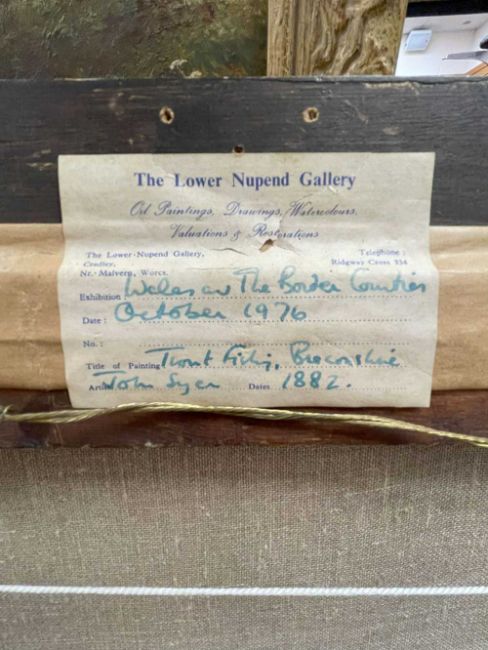 The Lower Nupend Gallery
Oil Paintings, Drawings, Watercolours,
Valuations & Restorations
The Lower Nupend Gallery,
Cradley,
Nr. Malvern, Worcs.
Telephone:
Ridgway Cross 334
Exhibition Wales and The Border Counties
Date: October 1976
No.:
Title of Painting Trout Fishing, Breconshire
Artist John Syer Date: 1882.